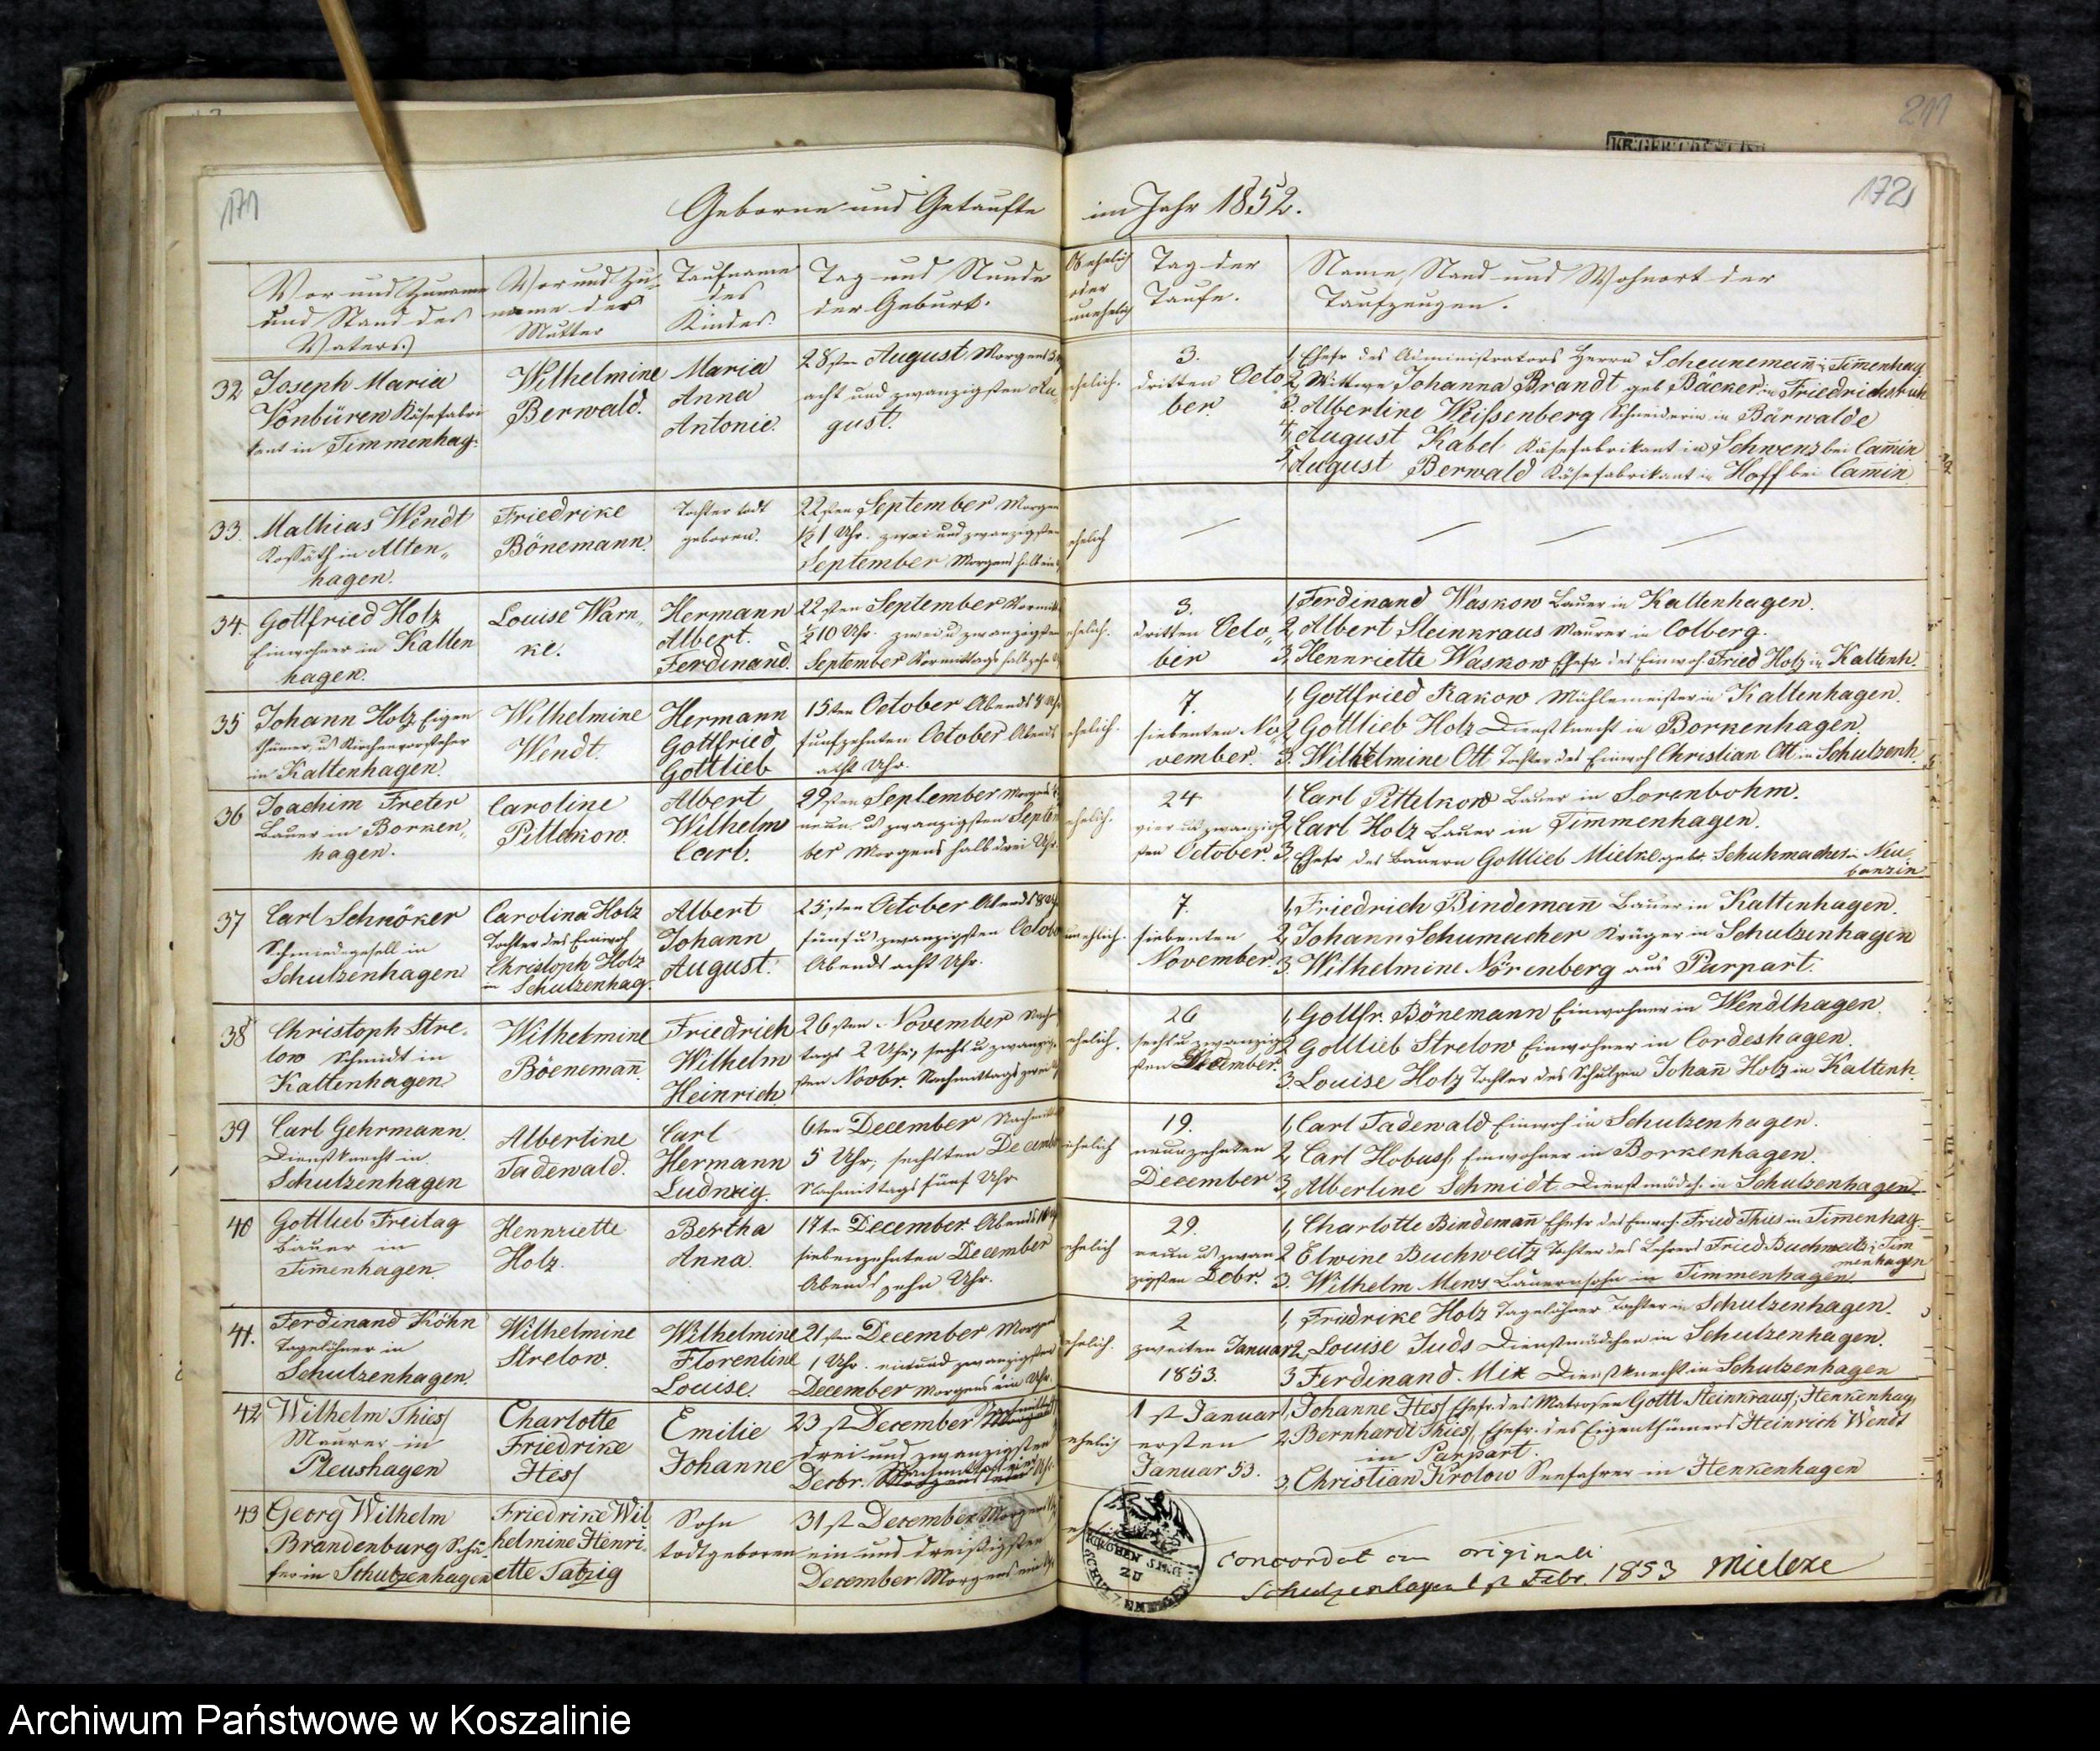 211
171
172
Geborne und Getaufte im Jahr 1852.
Vor und Zuname und Stand des Vaters.
Vor und Zuname der Mutter
Taufname des Kindes.
Tag und Stunde der Geburt.
Ob ehelich oder unehelich
Tag der Taufe.
Name, Stand und Wohnort der Taufzeugen.
32
Joseph Maria
Vonbüren Käsefabri
kant in Timmenhag.
Wilhelmine
Berwald.
Maria
Anna
Antonie.
28sten August Morgens
acht und zwanzigsten Au
gust.
ehelich.
3.
dritten Octo
ber
1, Ehefr des Administrators Herrn Scheunemann i. Timenhag
2, Wittwe Johanna Brandt geb Bäcker in Friedrichshuh
3. Albertine Weissenberg Schneiderin in Bärwalde
4, August Kabel Käsefabrikant in Schwenz bei Camin
5, August Berwald Käsefabrikant in Hoff bei Camin
33.
Mathias Wendt
Kossäth in Alten„
hagen.
Friedrike
Bönemann.
Tochter todt
geboren.
22sten September Morgen
½1 Uhr. zwei und zwanzigsten
September Morgens halb ein
ehelich
34.
Gottfried Holz
Einwohner in Kalten
hagen.
Louise Warn„
ke.
Hermann
Albert.
Ferdinand.
22sten September Vormitt
½10 Uhr. zwei u zwanzigsten
September Vormittags halb zehn
ehelich.
3.
dritten Octo„
ber
1, Ferdinand Waskow Bauer in Kaltenhagen.
2, Albert Steinkraus Maurer in Colberg.
3, Hennriette Waskow Ehefr des Einwoh. Fried Holz in Kaltenh.
35
Johann Holz Eigen
thümer, u Kirchenvorsteher
in Kaltenhagen.
Wilhelmine
Wendt.
Hermann
Gottfried
Gottlieb
15ten October Abends 8 Uhr
funfzehnten October Abends
acht Uhr.
ehelich.
7.
siebenten No„
vember.
1, Gottfried Rakow Mühlemeister in Kaltenhagen.
2, Gottlieb Holz Dienstknecht in Borkenhagen.
3. Wilhelmine Ott Tochter des Einwoh Christian Ott in Schulzenh.
36
Joachim Freter
Bauer in Borken„
hagen.
Caroline
Pittelkow.
Albert
Wilhelm
Carl.
29sten September Morgens
neun u zwanzigsten Septem
ber Morgens halb drei Uhr.
ehelich.
24
vier u zwanzig
sten October.
1, Carl Pittelkow Bauer in Sorenbohm.
2, Carl Holz Bauer in Timmenhagen.
3, Ehefr des Bauern Gottlieb Mielke geb. Schuhmacher in Neu
banzin
37
Carl Schnöker
Schmiedegesell in
Schulzenhagen
Carolina Holz
Tochter des Einwoh
Christoph Holz
in Schulzenhag.
Albert
Johann
August.
25sten October Abends 8 Uhr
fünf u zwanzigsten Octobr
Abends acht Uhr.
unehlich.
7.
siebenten
November.
1, Friedrich Bindemann Bauer in Kaltenhagen.
2, Johann Schumacher Krüger in Schulzenhagen
3. Wilhelmine Nörenberg aus Parpart.
38
Christoph Stre„
low Schmidt in
Kaltenhagen
Wilhelmine
Böenemann.
Friedrich
Wilhelm
Heinrich.
26sten November Nach
tags 2 Uhr, sechs u zwanzig
sten Novbr. Nachmittags zwei
ehelich.
26
sechs u zwanzig
sten December.
1, Gottfr. Bönemann Einwohner in Wendthagen.
2 Gottlieb Strelow Einwohner in Cordeshagen.
3. Louise Holz Tochter des Schulzen Johann Holz in Kaltenh.
39
Carl Gehrmann.
Dienstknecht in
Schulzenhagen
Albertine
Tadewald.
Carl
Hermann
Ludwig.
6ten December Nachmitt
5 Uhr, sechsten Decembr
Nachmittags fünf Uhr
ehelich
19.
neunzehnten
December
1, Carl Tadewald Einwoh in Schulzenhagen.
2, Carl Hobuss, Einwohner in Borkenhagen.
3, Albertine Schmidt Dienstmädch. in Schulzenhagen.
40
Gottlieb Freitag
Bauer in
Timenhagen.
Hennriette
Holz.
Bertha
Anna.
17te December Abends 10 Uhr
siebenzehnten December
Abends zehn Uhr.
ehelich
29.
neun u zwan
zigsten Decbr.
1, Charlotte Bindeman Ehefr des Einwoh. Fried Thies in Timenhag.
2 Elwine Buchweitz Tochter des Lehrers Fried Buchweitz i. Tim
menhagen
3. Wilhelm Menz Bauernsohn in Timmenhagen
41.
Ferdinand Köhn
Tagelöhner in
Schulzenhagen.
Wilhelmine
Strelow.
Wilhelmine
Florentine
Louise.
21sten December Morgen
1 Uhr. ein und zwanzigsten
December Morgens ein Uhr.
ehelich.
2
zweiten Januar
1853.
1, Friedrike Holz Tagelöhner Tochter in Schulzenhagen.
2, Louise Juds Dienstmädchen in Schulzenhagen.
3 Ferdinand Mix Dienstknecht in Schulzenhagen
42
Wilhelm Thiess
Maurer in
Pleushagen
Charlotte
Friedrike
Hess
Emilie
Johanne
23st December Nachmittag
drei und zwanzigsten
Decbr. Nachmittag vier Uhr.
ehelich
1st Januar
ersten
Januar 53.
1, Johanne Hess Ehefr. des Matrosen Gottl. Steinkrauss, Henkenhag,
2. Bernhardi Thiess, Ehefr. des Eigenthümers Heinrich Wendt
in Parpart.
3, Christian Krolow Seefahrer in Henkenhagen
43
Georg Wilhelm
Brandenburg Schä„
fer in Schulzenhagen
Friedrike Wil
helmine Henri„
ette Tatzig
Sohn
todtgeboren
31st December Morgens
ein und dreißigsten
December Morgens ein
KIRCHEN SIEGEL
ZU
SCHULZENHAGEN
concordat cum originali
Schulzenhagen 1 st Febr. 1853 Mielcke
Archiwum Państwowe w Koszalinie